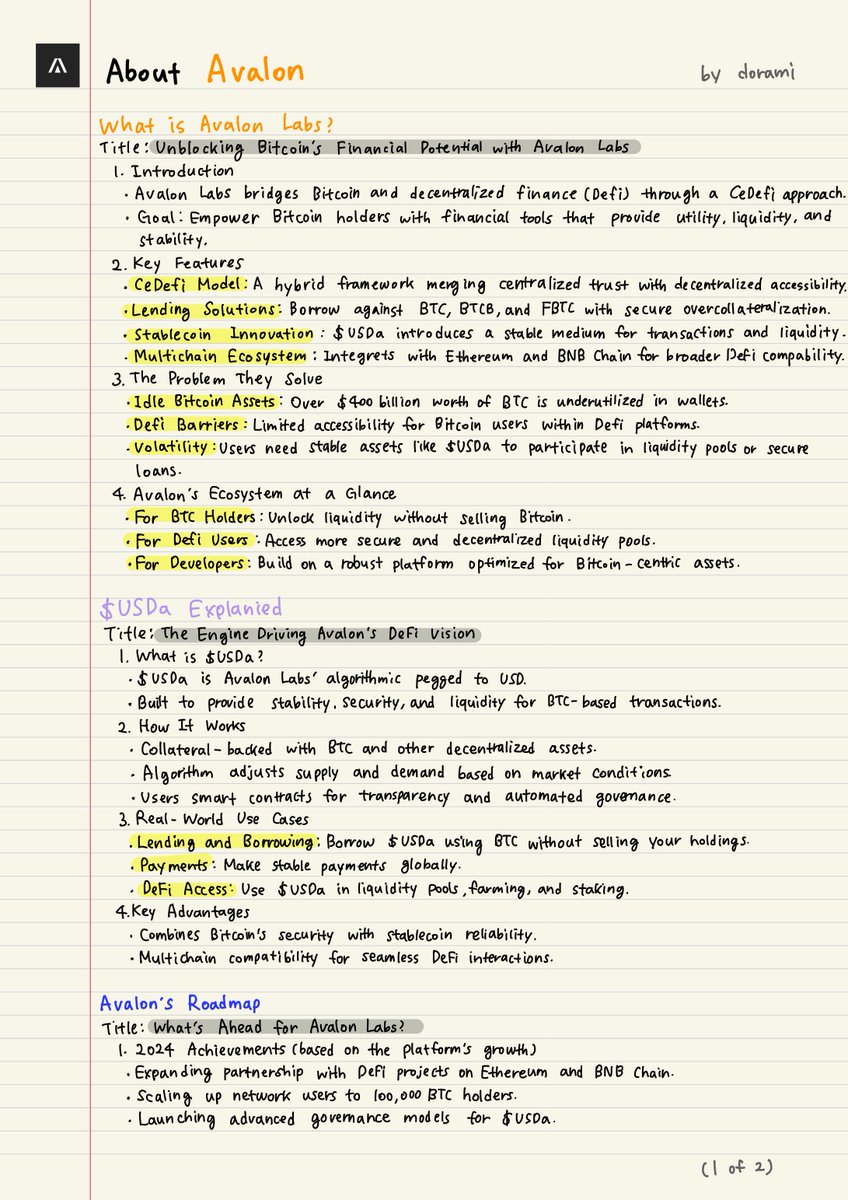 About Avalon
by dorami
What is Avalon Labs?
Title: Unblocking Bitcoin's Financial Potential with Avalon Labs
1. Introduction
• Avalon Labs bridges Bitcoin and decentralized finance (Defi) through a CeDefi approach.
• Goal: Empower Bitcoin holders with financial tools that provide utility, liquidity, and
stability.
2. Key Features
• CeDefi Model: A hybrid framework merging centralized trust with decentralized accessibility.
• Lending Solutions: Borrow against BTC, BTCB, and FBTC with secure overcollateralization.
• Stablecoin Innovation: $USDa introduces a stable medium for transactions and liquidity.
• Multichain Ecosystem: Integrets with Ethereum and BNB Chain for broader Defi compability.
3. The Problem They Solve
• Idle Bitcoin Assets: Over $400 billion worth of BTC is underutilized in wallets.
• Defi Barriers: Limited accessibility for Bitcoin users within Defi platforms.
• Volatility: Users need stable assets like $USDa to participate in liquidity pools or secure
loans.
4. Avalon's Ecosystem at a Glance
• For BTC Holders: Unlock liquidity without selling Bitcoin.
• For Defi Users: Access more secure and decentralized liquidity pools.
• For Developers: Build on a robust platform optimized for Bitcoin-centric assets.
$USDa Explanied
Title: The Engine Driving Avalon's DeFi Vision
1. What is $USDa?
• $USDa is Avalon Labs' algorithmic pegged to USD.
• Built to provide stability, security, and liquidity for BTC-based transactions.
2. How It Works
• Collateral-backed with BTC and other decentralized assets.
• Algorithm adjusts supply and demand based on market conditions.
• Users smart contracts for transparency and automated governance.
3. Real-World Use Cases
• Lending and Borrowing: Borrow $USDa using BTC without selling your holdings.
• Payments: Make stable payments globally.
• DeFi Access: Use $USDa in liquidity pools, farming, and staking.
4. Key Advantages
• Combines Bitcoin's security with stablecoin reliability.
• Multichain compatibility for seamless DeFi interactions.
Avalon's Roadmap
Title: What's Ahead for Avalon Labs?
1. 2024 Achievements (based on the platform's growth)
• Expanding partnership with Defi projects on Ethereum and BNB Chain.
• Scaling up network users to 100,000 BTC holders.
• Launching advanced governance models for $USDa.
(1 of 2)